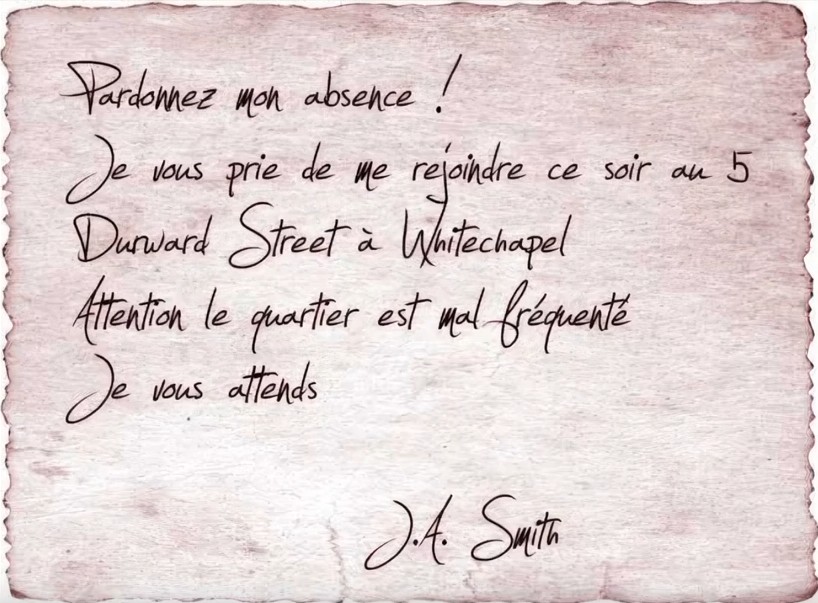 Pardonnez mon absence !
Je vous prie de me rejoindre ce soir au 5
Durward Street à Whitechapel
Attention le quartier est mal fréquenté
Je vous attends
J.A. Smith